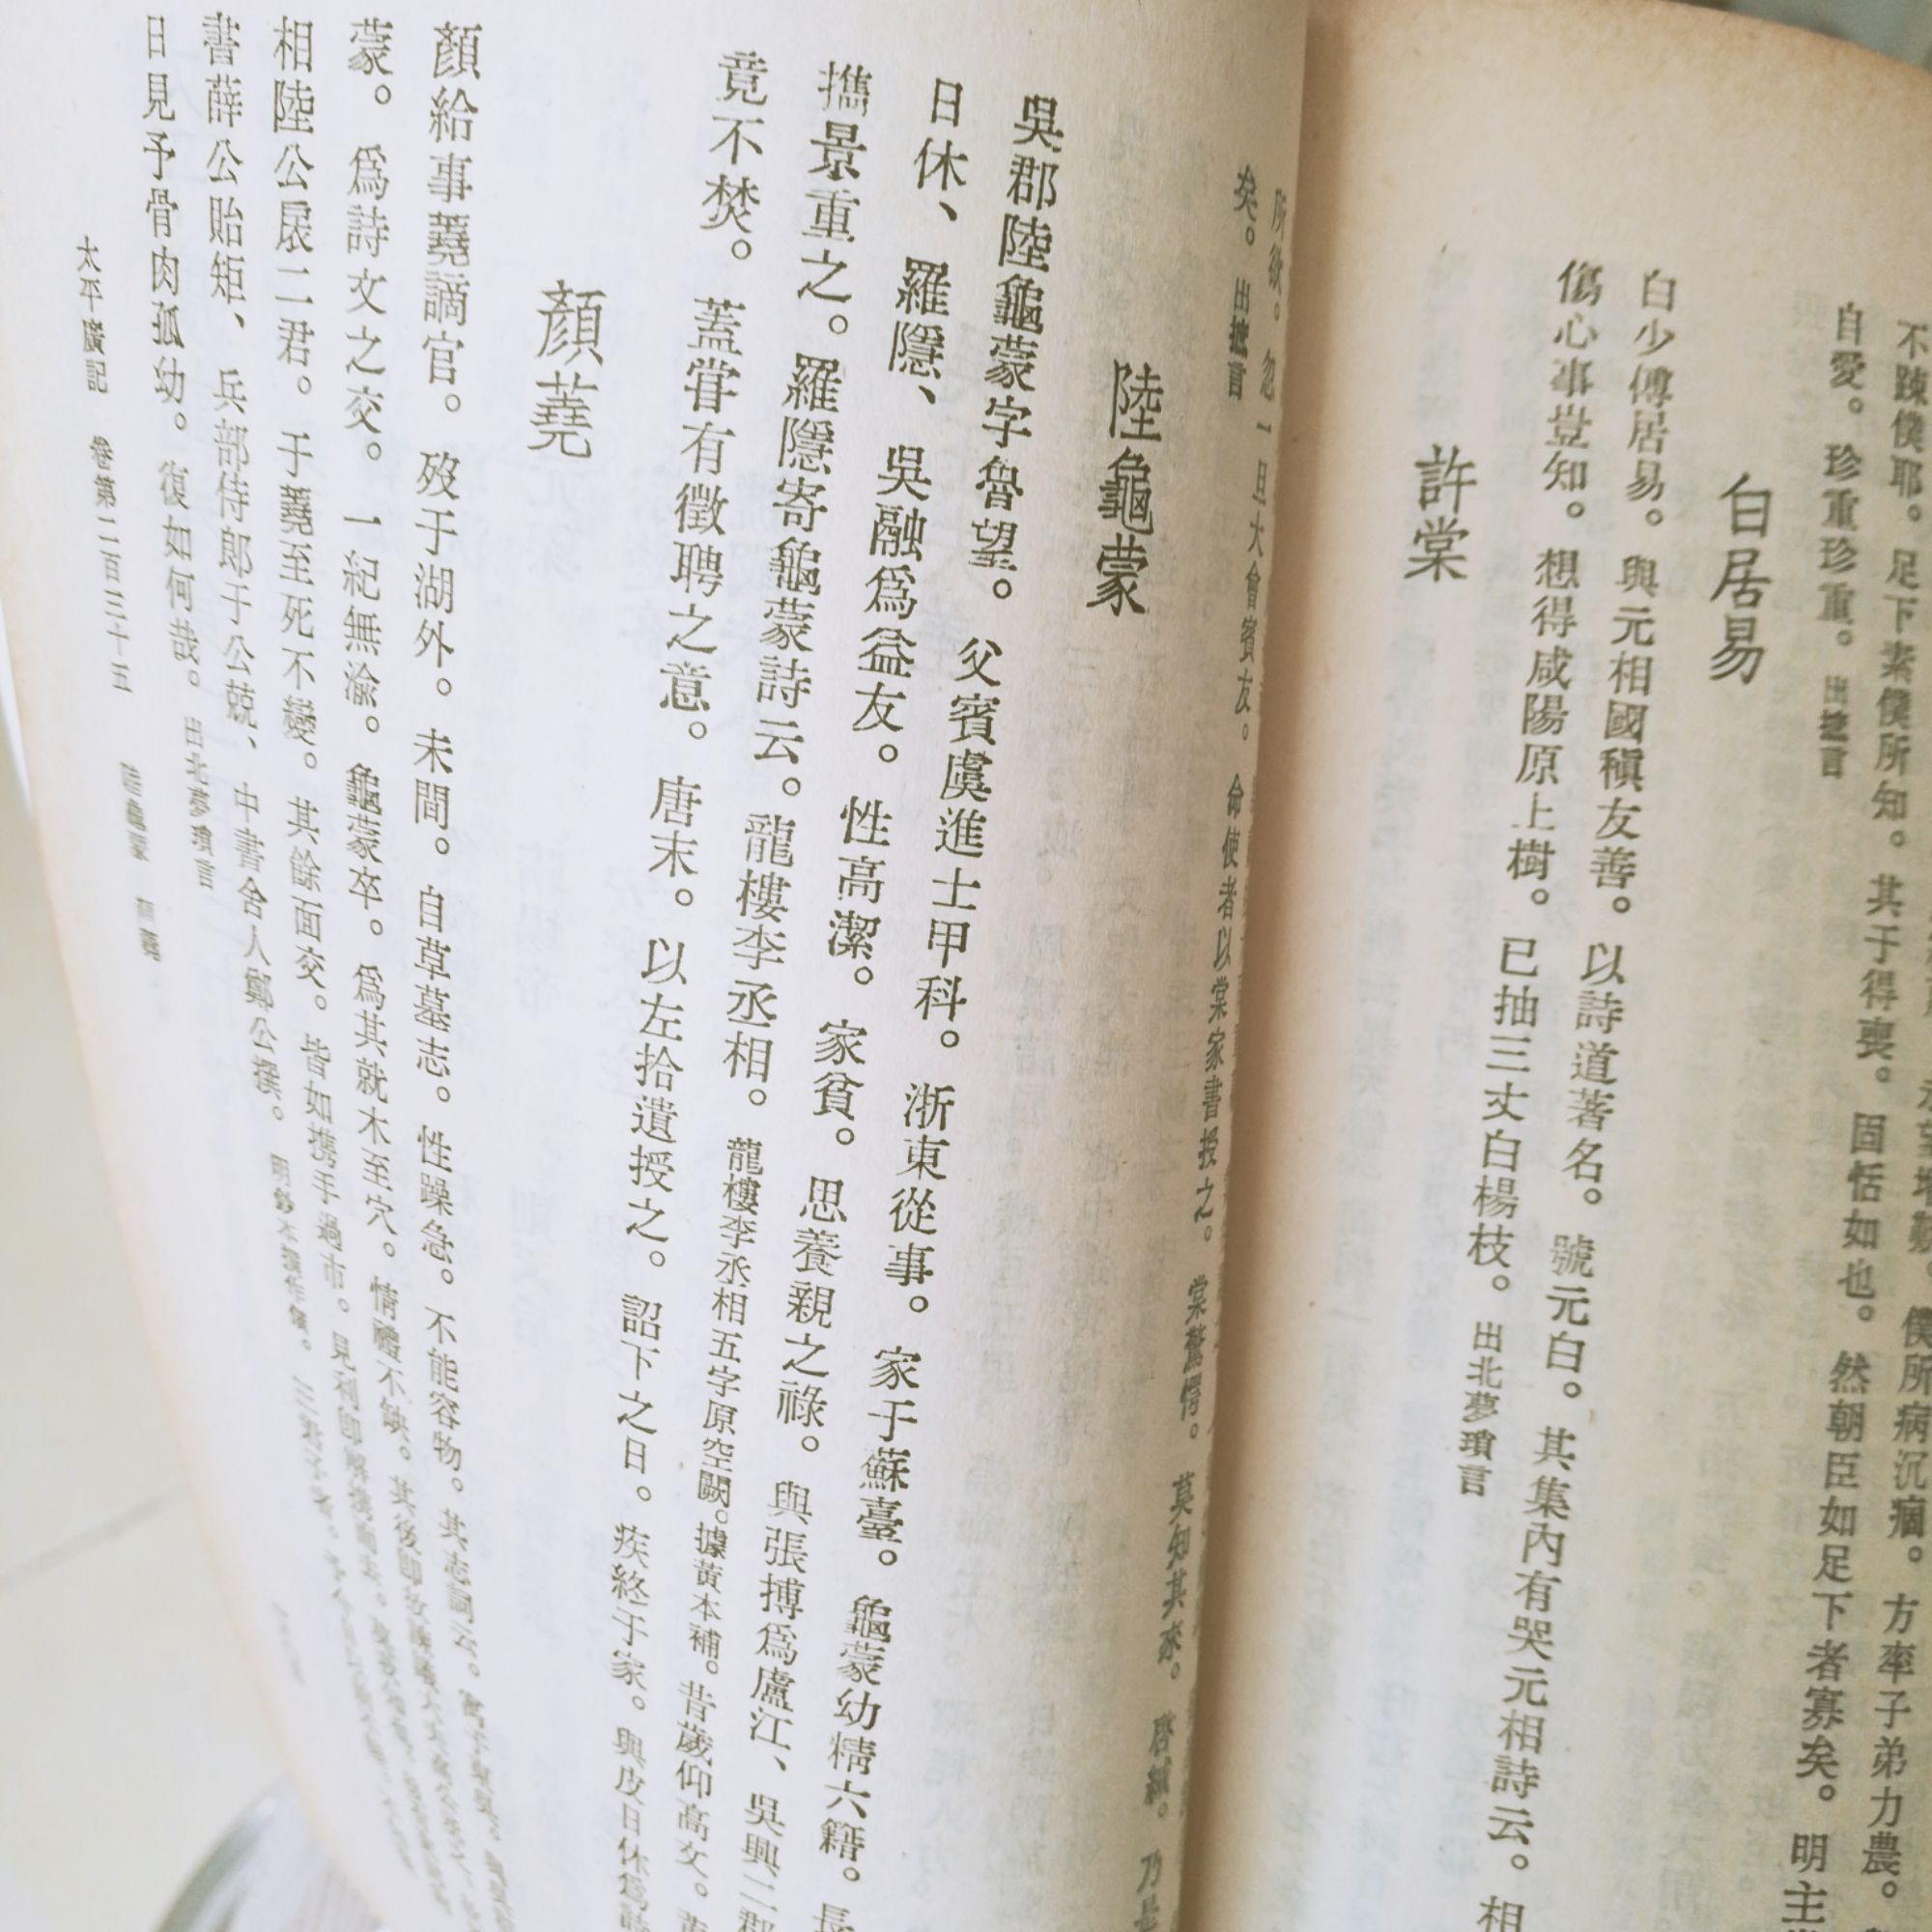 不踈僕耶。足下素僕所知。其于得喪。固恬如也。然朝臣如足下者寡矣。明主
自愛。珍重珍重。出摭言
白居易
白少傅居易。與元相國稹友善。以詩道著名。號元白。其集內有哭元相詩云。相
傷心事豈知。想得咸陽原上樹。已抽三丈白楊枝。出北夢瑣言
許棠
所欲。忽一旦大會賓友。命使者以棠家書授之。棠驚愕。莫知其來。啓緘。乃
矣。出摭言
陸龜蒙
吳郡陸龜蒙字魯望。父賓虞進士甲科。浙東從事。家于蘇臺。龜蒙幼精六籍。長
日休、羅隱、吳融爲益友。性高潔。家貧。思養親之祿。與張搏爲盧江、吳興二郡
攜景重之。羅隱寄龜蒙詩云。龍樓李丞相。龍樓李丞相五字原空闕。據黃本補。昔歲仰高文。黃
竟不焚。蓋甞有徵聘之意。唐末。以左拾遺授之。詔下之日。疾終于家。與皮日休爲詩
顏蕘
顏給事蕘謫官。歿于湖外。未間。自草墓志。性躁急。不能容物。其志詞云。寓于東吳。
蒙。爲詩文之交。一紀無渝。龜蒙卒。爲其就木至穴。情禮不缺。其後即故
相陸公扆二君。于蕘至死不變。其餘面交。皆如攜手過市。見利即解攜而去。
書薛公貽矩、兵部侍郎于公兢、中書舍人鄭公撰。明鈔本撰作
日見予骨肉孤幼。復如何哉。出北夢瑣言
太平廣記 卷第二百三十五 陸龜蒙 顏蕘